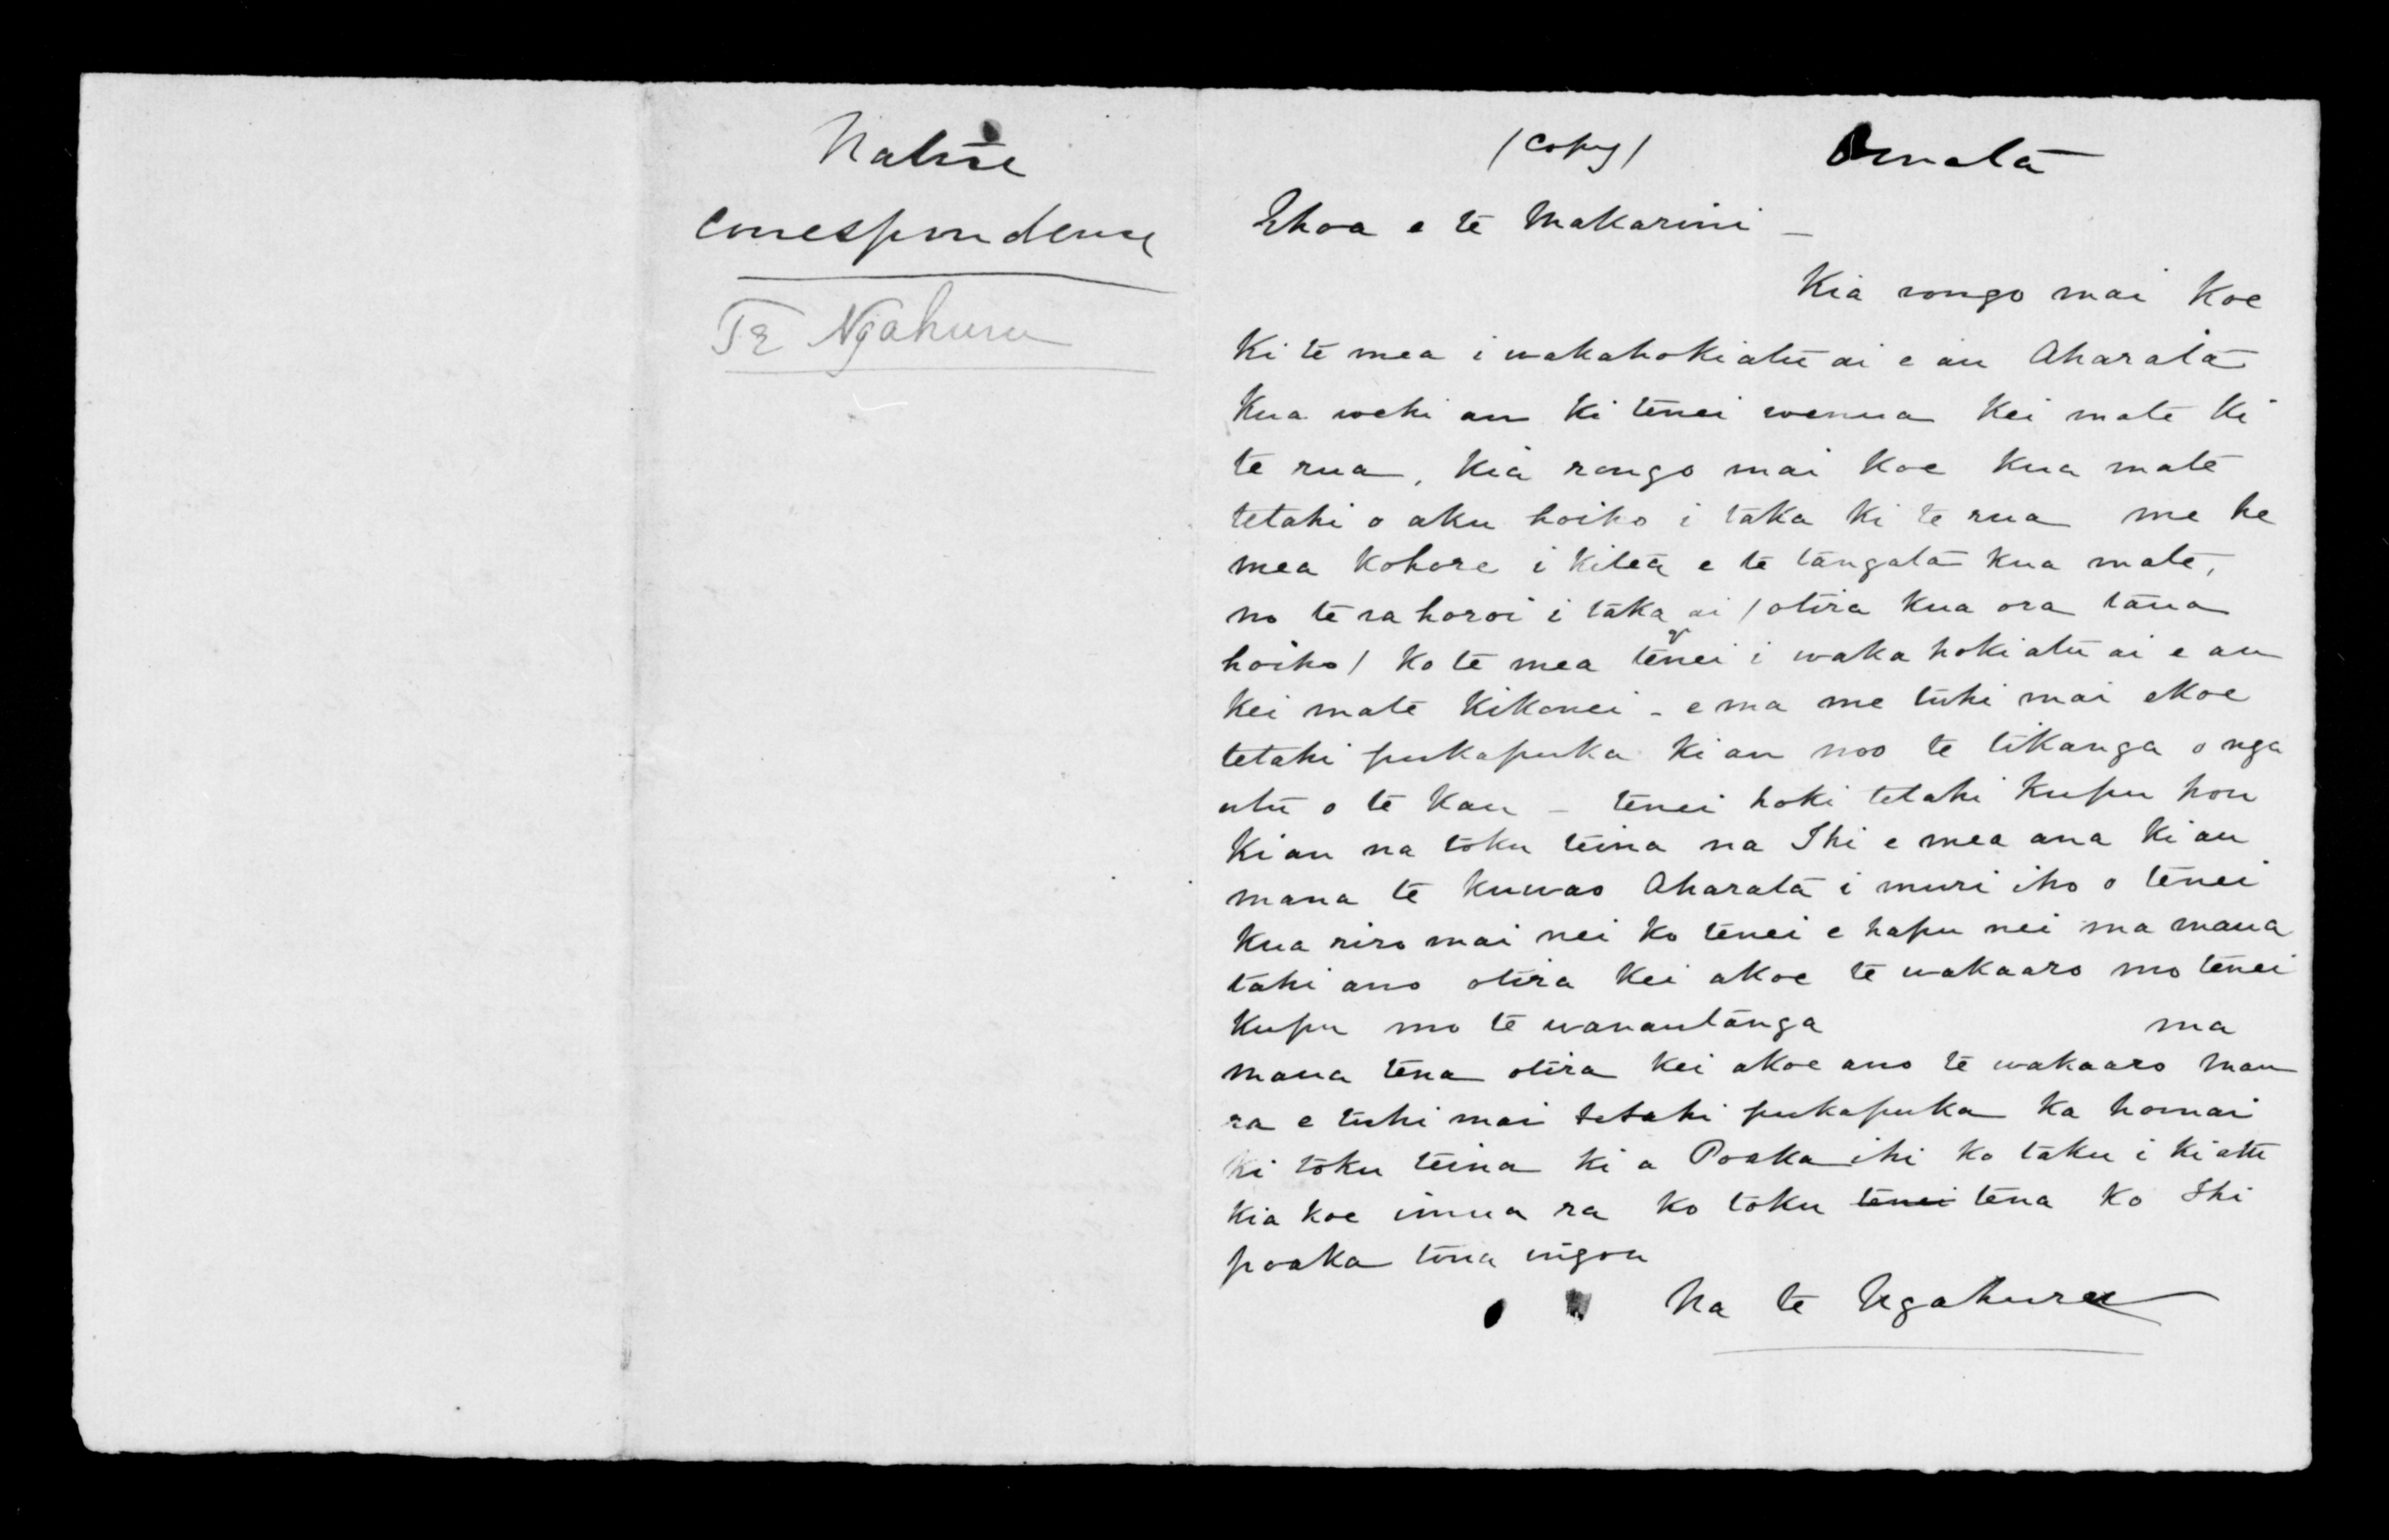 Native
Correspondence
Te Ngahuru
(Copy) Omata
Ehoa e te Makarini _
Kia rongo mai koe
ki te mea i wakahokiatu ai e au Aharata
kua wehi au ki tenei wenua kei mate ki
te rua, kia rongo mai koe kua mate
tetahi o aku hoiho i taka ki te rua me he
mea kohore i kitea e te tangata kua mate,
no te ra horoi i taka ai / otira kua ora taua
hoiho / ko te mea tenei i waka hokiatu ai e au
kei mate kikonei - e ma me tuhi mai ekoe
tetahi pukapuka ki au moo te tikanga o nga
utu o te kau _ tenei hoki tetahi kupu hou
ki au na toku teina na Ihi e mea ana ki au
mana te kuwao Aharata i muri iho o tenei
kua riro mai nei ko tenei e hapu nei ma maua
tahi ano otira kei akoe te wakaaro mo tenei
kupu mo te wanautanga ma
maua tena otira kei akoe ano te wakaaro mau
ra e tuhi mai tetahi pukapuka ka homai
ki toku teina ki a Poaka ihi ko taku i ki atu
kia koe imua ra ko toku tenei tena ko Ihi
poaka tona ingoa
Na te Ngahuru